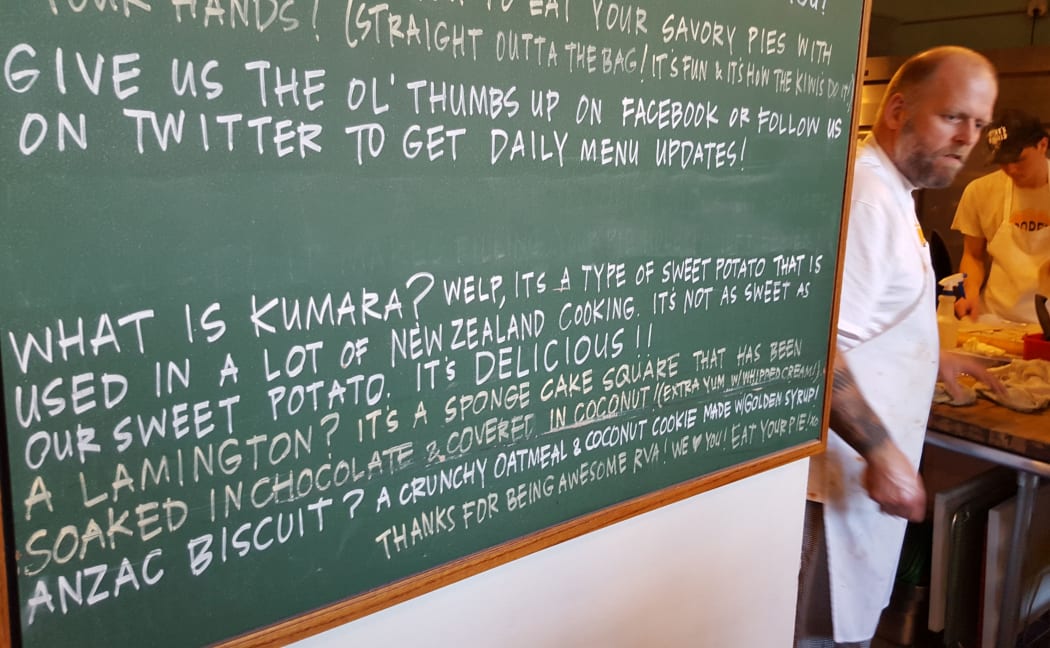 YOUR HANDS! TO EAT YOUR SAVORY PIES WITH
(STRAIGHT OUTTA THE BAG! IT'S FUN & IT'S HOW THE KIWIS DO IT!)
GIVE US THE OL' THUMBS UP ON FACEBOOK OR FOLLOW US
ON TWITTER TO GET DAILY MENU UPDATES!
WHAT IS KUMARA? WELP, ITS A TYPE OF SWEET POTATO THAT IS
USED IN A LOT OF NEW ZEALAND COOKING. IT'S NOT AS SWEET AS
OUR SWEET POTATO. IT'S DELICIOUS!!
A LAMINGTON? IT'S A SPONGE CAKE SQUARE THAT HAS BEEN
SOAKED IN CHOCOLATE & COVERED IN COCONUT! (EXTRA YUM W/WHIPPED CREAM!)
ANZAC BISCUIT? A CRUNCHY OATMEAL & COCONUT COOKIE MADE W/GOLDEN SYRUP!
THANKS FOR BEING AWESOME RVA! WE ♥ YOU! EAT YOUR PIE! XO